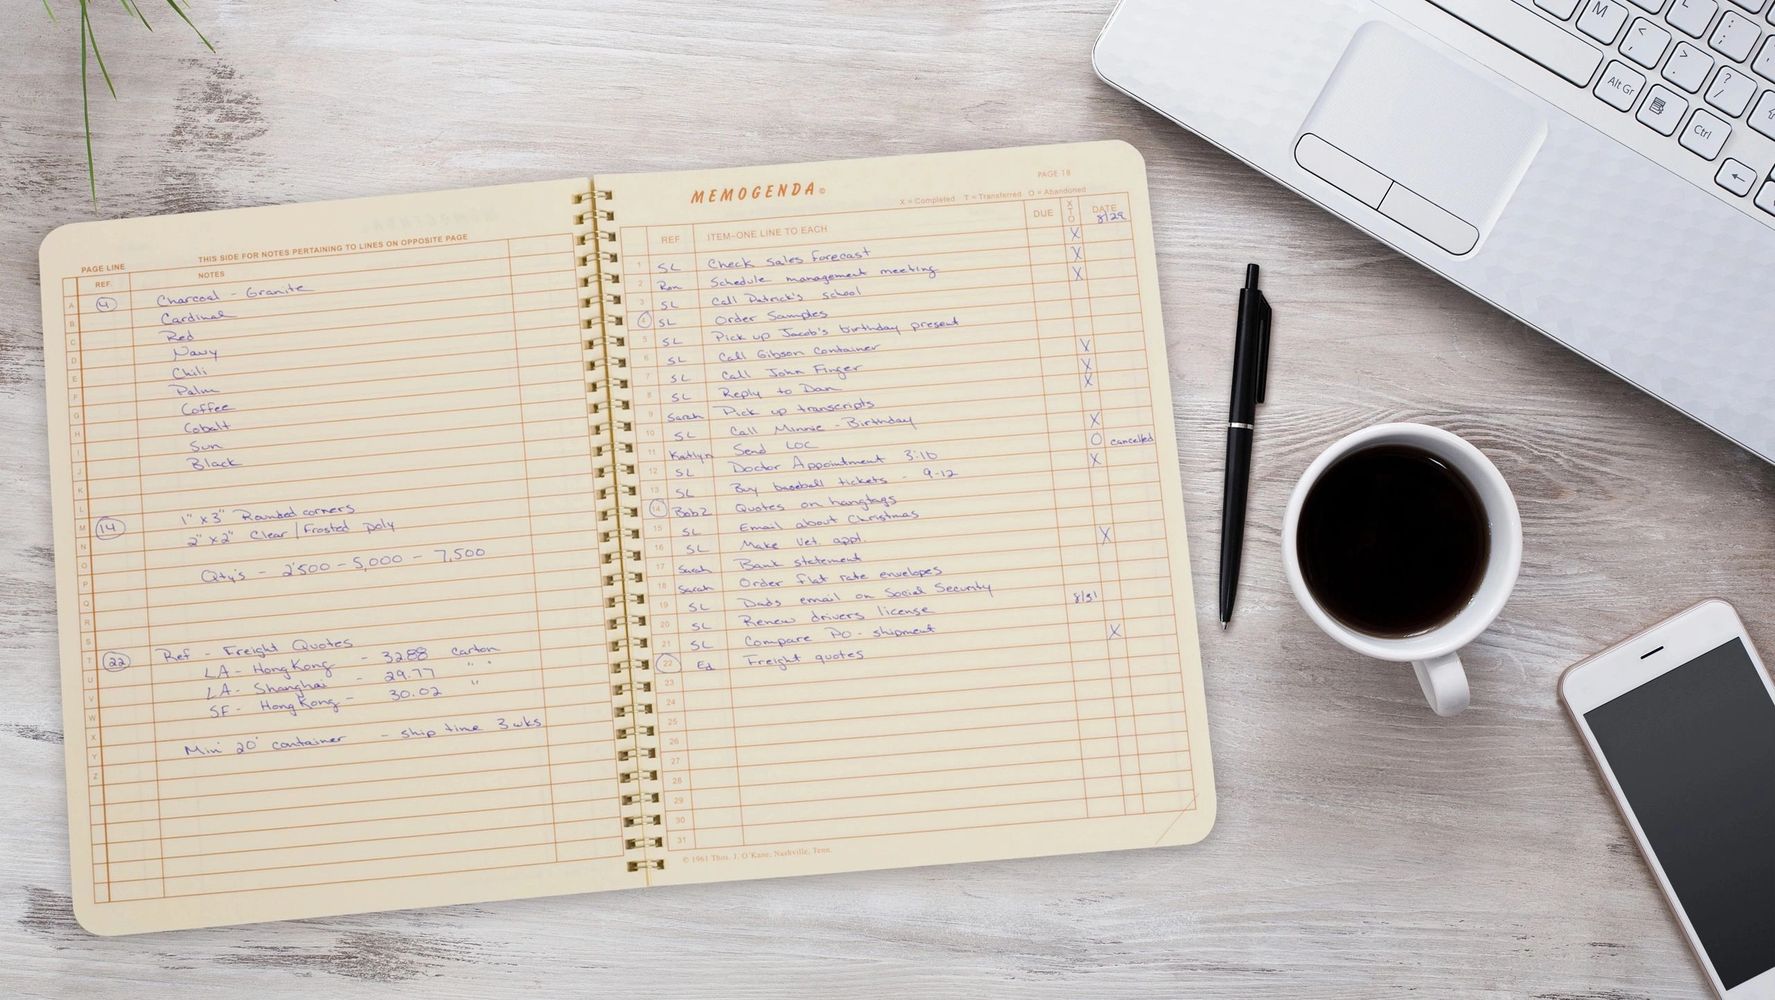 THIS SIDE FOR NOTES PERTAINING TO LINES ON OPPOSITE PAGE
PAGE LINE
REF.
NOTES
A 4 Charcoal - Granite
B Cardinal
C Red
D Navy
E Chili
F Palm
G Coffee
H Cobalt
I Sun
J Black
K
L
M 14 1" x 3" Rounded corners
N 2" x 2" Clear / Frosted poly
O
P Qty's - 2'500 - 5,000 - 7,500
Q
R
S
T 22 Ref - Freight Quotes
U LA - Hong Kong - 32.88 carton
V LA - Shanghai - 29.77 " "
W SF - Hong Kong - 30.02 "
X
Y Min 20' container - ship time 3 wks
Z
MEMOGENDA ©
PAGE 18
X = Completed T = Transferred O = Abandoned
REF ITEM–ONE LINE TO EACH DUE X T O DATE
8/29
1 SL Check Sales Forecast X
2 Ron Schedule management meeting X
3 SL Call Patrick's school X
4 SL Order Samples
5 SL Pick up Jacob's birthday present
6 SL Call Gibson Container
7 SL Call John Finger X
8 SL Reply to Dan X
9 Sarah Pick up transcripts X
10 SL Call Minnie - Birthday
11 Kaitlyn Send LOC X
12 SL Doctor Appointment 3:10 O cancelled
13 SL Buy baseball tickets - 9-12 X
14 Bob Z Quotes on hangtags
15 SL Email about Christmas
16 SL Make Vet appt.
17 Sarah Bank statement X
18 Sarah Order flat rate envelopes
19 SL Dads email on Social Security
20 SL Renew drivers license 8/31
21 SL Compare PO - shipment
22 Ed Freight quotes X
23
24
25
26
27
28
29
30
31
© 1961 Thos. J. O'Kane, Nashville, Tenn.
M
L
Alt Gr
Ctrl